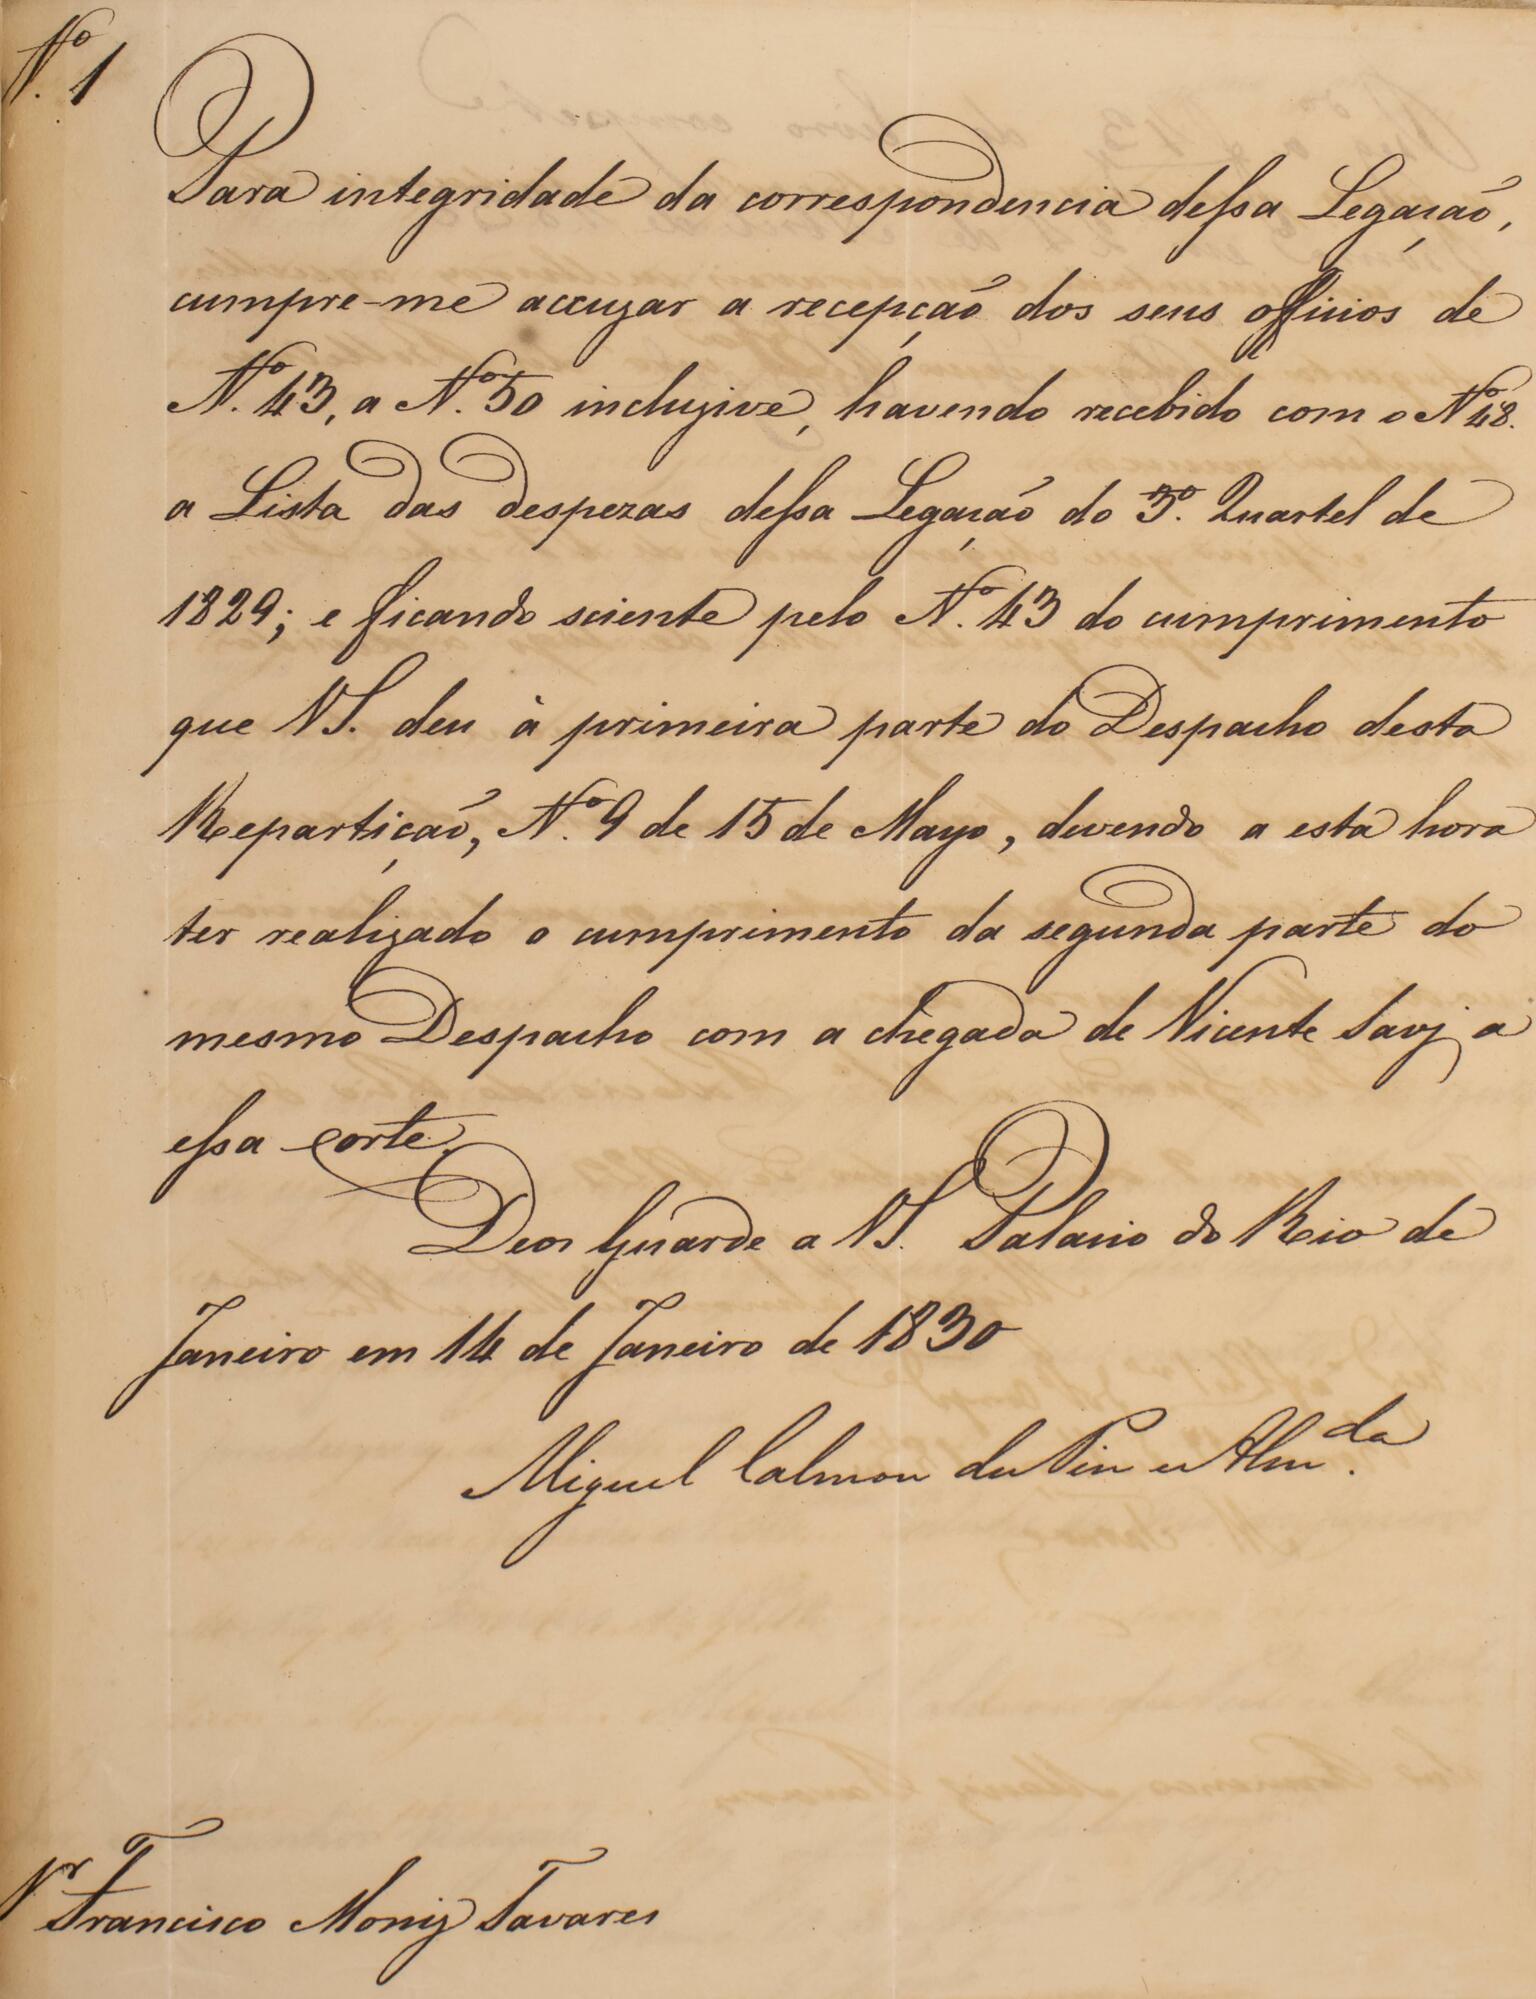 Nº. 1
Para integridade da correspondencia dessa Legação,
cumpre-me accuzar a recepção dos seus officios de
Nº. 43, a Nº. 50 incluzive, havendo recebido com o Nº 48.
a Lista das despezas dessa Legação do 3º. Quartel de
1829; e ficando sciente pelo Nº. 43 do cumprimento
que VS. deu à primeira parte do Despacho desta
Repartição, Nº. 9 de 15 de Mayo, devendo a esta hora
ter realizado o cumprimento da segunda parte do
mesmo Despacho com a chegada de Vicente Savj a
essa Corte.
Deos Guarde a VS. Palacio do Rio de
Janeiro em 14 de Janeiro de 1830
Miguel Calmon du Pin e Alm.da
Sr Francisco Moniz Tavares